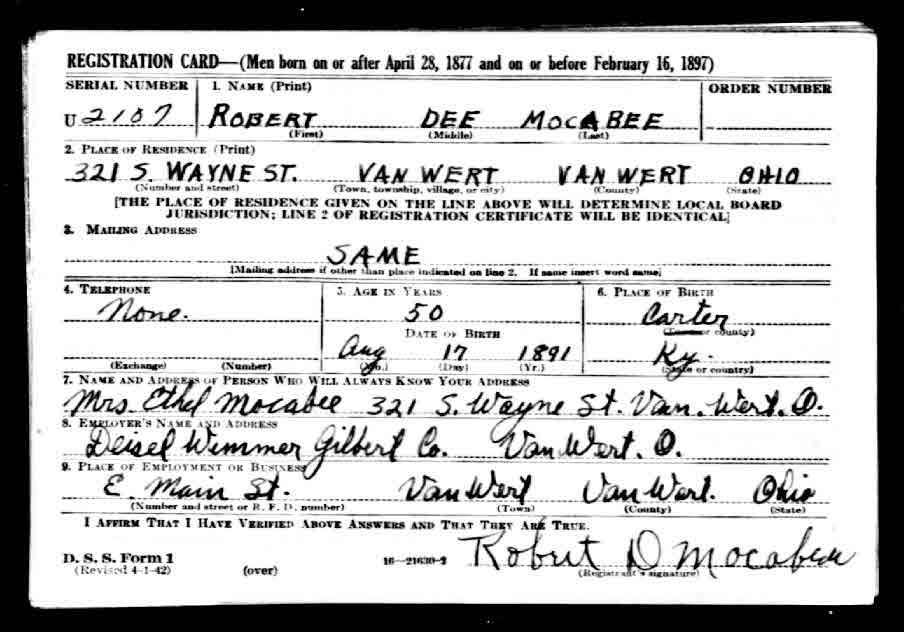 REGISTRATION CARD—(Men born on or after April 28, 1877 and on or before February 16, 1897)
SERIAL NUMBER 1. NAME (Print) ORDER NUMBER
U 2107 ROBERT DEE MOCABEE
(First) (Middle) (Last)
2. PLACE OF RESIDENCE (Print)
321 S. WAYNE ST. VAN WERT VAN WERT OHIO
(Number and street) (Town, township, village, or city) (County) (State)
[THE PLACE OF RESIDENCE GIVEN ON THE LINE ABOVE WILL DETERMINE LOCAL BOARD
JURISDICTION; LINE 2 OF REGISTRATION CERTIFICATE WILL BE IDENTICAL]
3. MAILING ADDRESS
SAME
[Mailing address if other than place indicated on line 2. If same insert word same]
4. TELEPHONE 5. AGE IN YEARS 6. PLACE OF BIRTH
None. 50 Carter
DATE OF BIRTH (Town or county)
Aug 17 1891 Ky.
(Exchange) (Number) (Mo.) (Day) (Yr.) (State or country)
7. NAME AND ADDRESS OF PERSON WHO WILL ALWAYS KNOW YOUR ADDRESS
Mrs. Ethel Mocabee 321 S. Wayne St. Van. Wert. O.
8. EMPLOYER'S NAME AND ADDRESS
Deisel Wemmer Gilbert Co. Van Wert. O.
9. PLACE OF EMPLOYMENT OR BUSINESS
E. Main St. Van Wert Van Wert. Ohio
(Number and street or R. F. D. number) (Town) (County) (State)
I AFFIRM THAT I HAVE VERIFIED ABOVE ANSWERS AND THAT THEY ARE TRUE.
D. S. S. Form 1
(Revised 4-1-42) (over) 16—21630-2 Robert D Mocabee
(Registrant's signature)